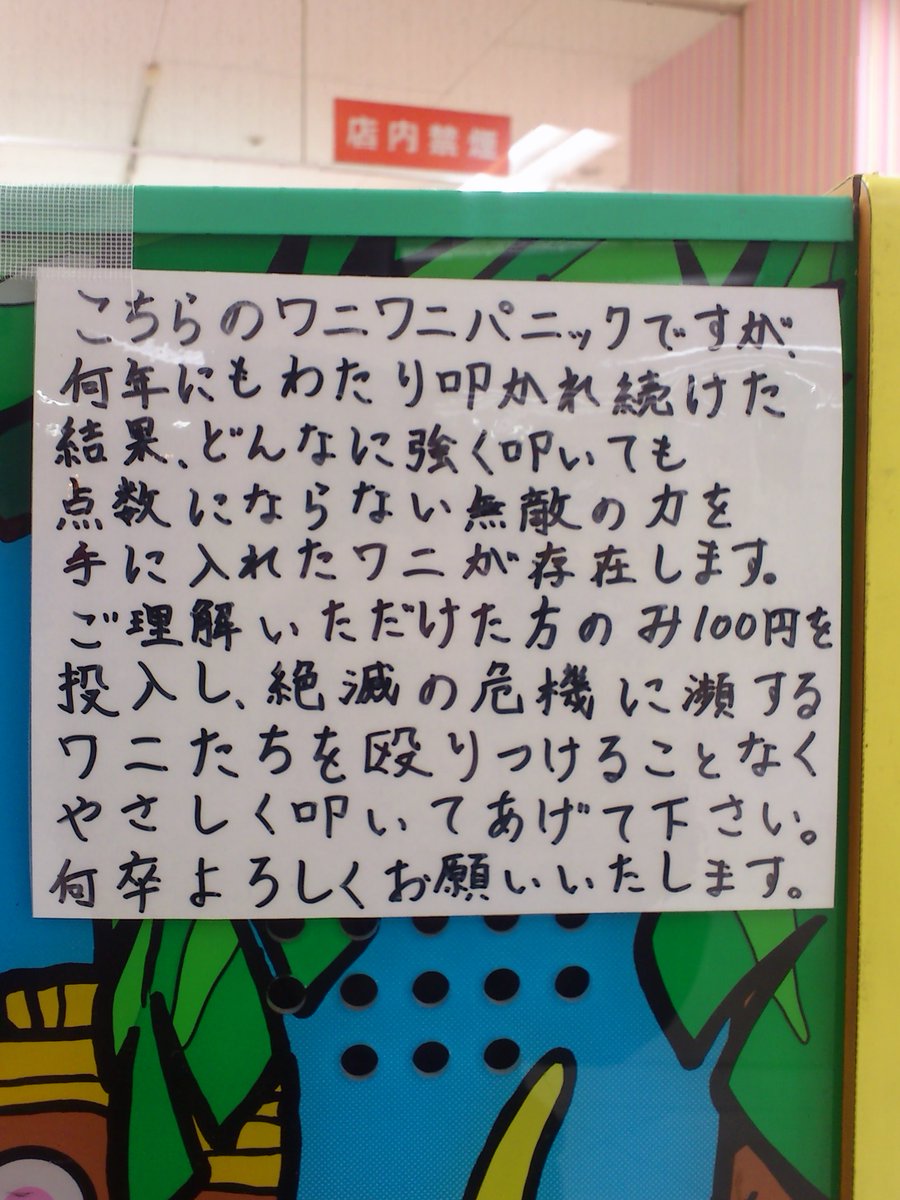 店内禁煙
こちらのワニワニパニックですが、
何年にもわたり叩かれ続けた
結果、どんなに強く叩いても
点数にならない無敵の力を
手に入れたワニが存在します。
ご理解いただけた方のみ100円を
投入し、絶滅の危機に瀕する
ワニたちを殴りつけることなく
やさしく叩いてあげて下さい。
何卒よろしくお願いいたします。